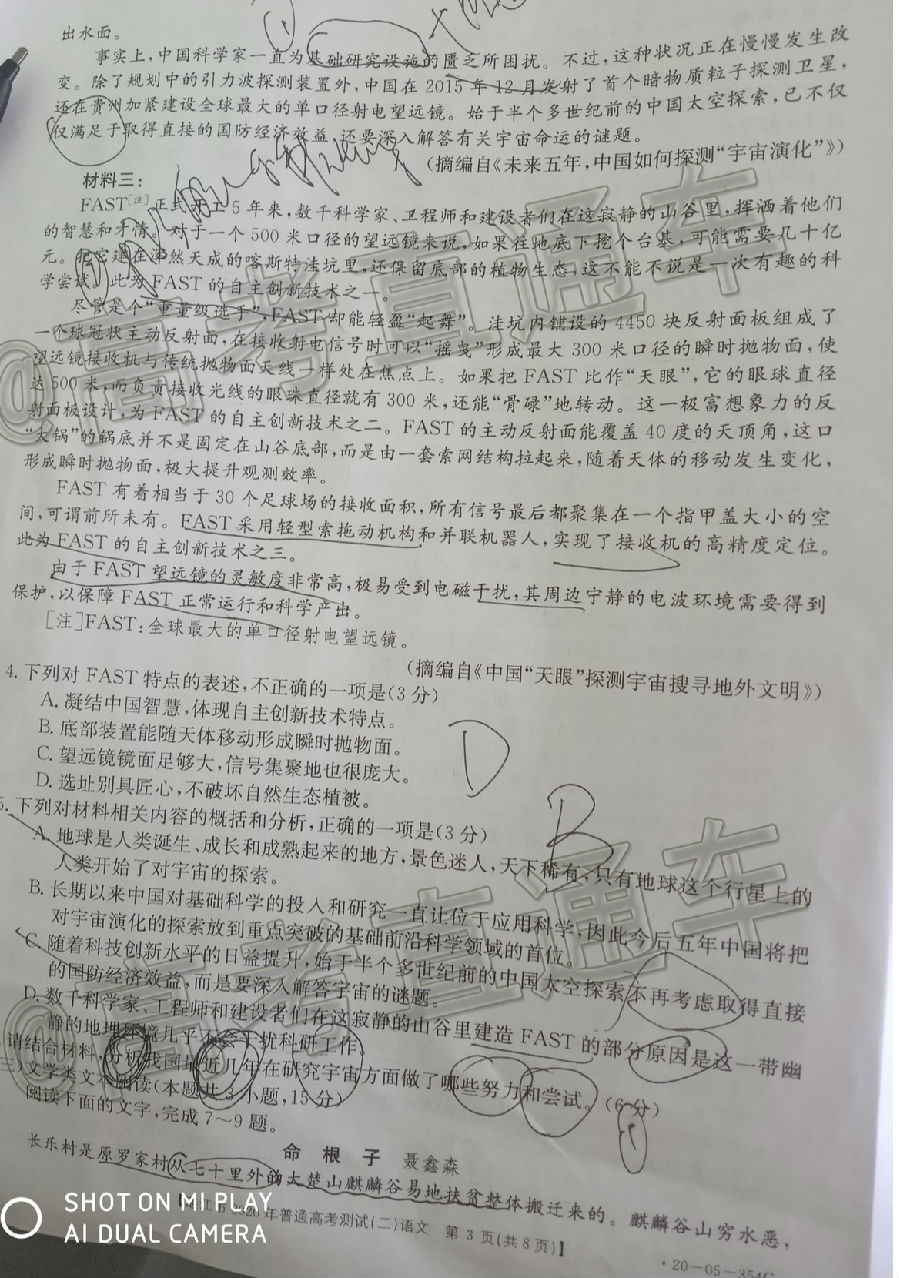 出水面。
事实上,中国科学家一直为基础研究设施的匮乏所困扰。不过,这种状况正在慢慢发生改
变。除了规划中的引力波探测装置外,中国在2015年12月发射了首个暗物质粒子探测卫星,
还在贵州加紧建设全球最大的单口径射电望远镜。始于半个多世纪前的中国太空探索,已不仅
仅满足于取得直接的国防经济效益,还要深入解答有关宇宙命运的谜题。
(摘编自《未来五年,中国如何探测“宇宙演化”》)
材料三:
FAST[注]正式开工5年来,数千科学家、工程师和建设者们在这寂静的山谷里,挥洒着他们
的智慧和才情。对于一个500米口径的望远镜来说,如果在地底下挖个台基,可能需要几十亿
元。把它建在浑然天成的喀斯特洼坑里,还保留底部的植物生态,这不能不说是一次有趣的科
学尝试,此为FAST的自主创新技术之一。
尽管是个“重量级选手”,FAST却能轻盈“起舞”。洼坑内铺设的4450块反射面板组成了
一个球冠状主动反射面,在接收射电信号时可以“摇曳”形成最大300米口径的瞬时抛物面,使
望远镜接收机与传统抛物面天线一样处在焦点上。如果把FAST比作“天眼”,它的眼球直径
达500米,而负责接收光线的眼珠直径就有300米,还能“骨碌”地转动。这一极富想象力的反
射面板设计,为FAST的自主创新技术之二。FAST的主动反射面能覆盖40度的天顶角,这口
“大锅”的锅底并不是固定在山谷底部,而是由一套索网结构拉起来,随着天体的移动发生变化,
形成瞬时抛物面,极大提升观测效率。
FAST有着相当于30个足球场的接收面积,所有信号最后都聚集在一个指甲盖大小的空
间,可谓前所未有。FAST采用轻型索拖动机构和并联机器人,实现了接收机的高精度定位。
此为FAST的自主创新技术之三。
由于FAST望远镜的灵敏度非常高,极易受到电磁干扰,其周边宁静的电波环境需要得到
保护,以保障FAST正常运行和科学产出。
[注]FAST:全球最大的单口径射电望远镜。
(摘编自《中国“天眼”探测宇宙搜寻地外文明》)
4.下列对FAST特点的表述,不正确的一项是(3分)
A.凝结中国智慧,体现自主创新技术特点。
B.底部装置能随天体移动形成瞬时抛物面。
C.望远镜镜面足够大,信号集聚地也很庞大。
D.选址别具匠心,不破坏自然生态植被。
D
5.下列对材料相关内容的概括和分析,正确的一项是(3分)
B
A.地球是人类诞生、成长和成熟起来的地方,景色迷人,天下稀有,只有地球这个行星上的
人类开始了对宇宙的探索。
B.长期以来中国对基础科学的投入和研究一直让位于应用科学,因此今后五年中国将把
对宇宙演化的探索放到重点突破的基础前沿科学领域的首位。
C.随着科技创新水平的日益提升,始于半个多世纪前的中国太空探索不再考虑取得直接
的国防经济效益,而是要深入解答宇宙的谜题。
D.数千科学家、工程师和建设者们在这寂静的山谷里建造FAST的部分原因是这一带幽
静的地理环境几乎不会干扰科研工作。
请结合材料,分析我国最近几年在研究宇宙方面做了哪些努力和尝试。(6分)
三)文学类文本阅读(本题共3小题,15分)
阅读下面的文字,完成7~9题。
命根子 聂鑫森
长乐村是原罗家村从七十里外的大楚山麒麟谷易地扶贫整体搬迁来的。麒麟谷山穷水恶,
2020年普通高考测试(二)语文 第3页(共8页)】
·20-05-354C
SHOT ON MI PLAY
AI DUAL CAMERA
@高考直通车
@高考直通车